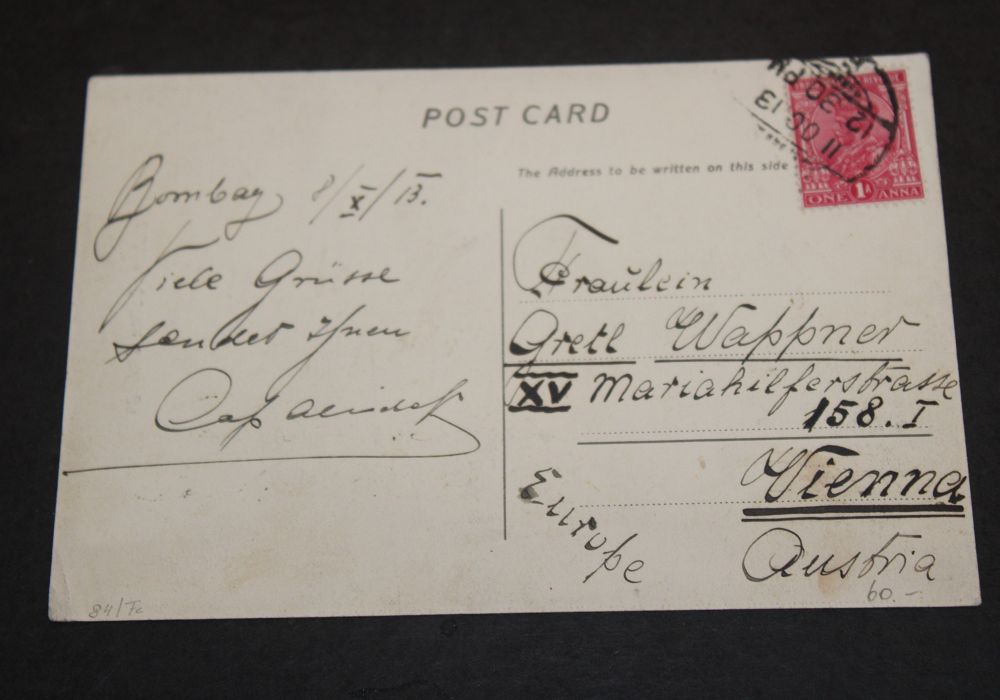 POST CARD
The Address to be written on this side
11 OC 13
12 30 PM
ONE 1A ANNA
Bombay 8/X/13.
Viele Grüsse
sendet Ihnen
Fräulein
Gretl Wappner
XV Mariahilferstrasse
158.I
Vienna
Austria
Europe
84/Fe
60.-